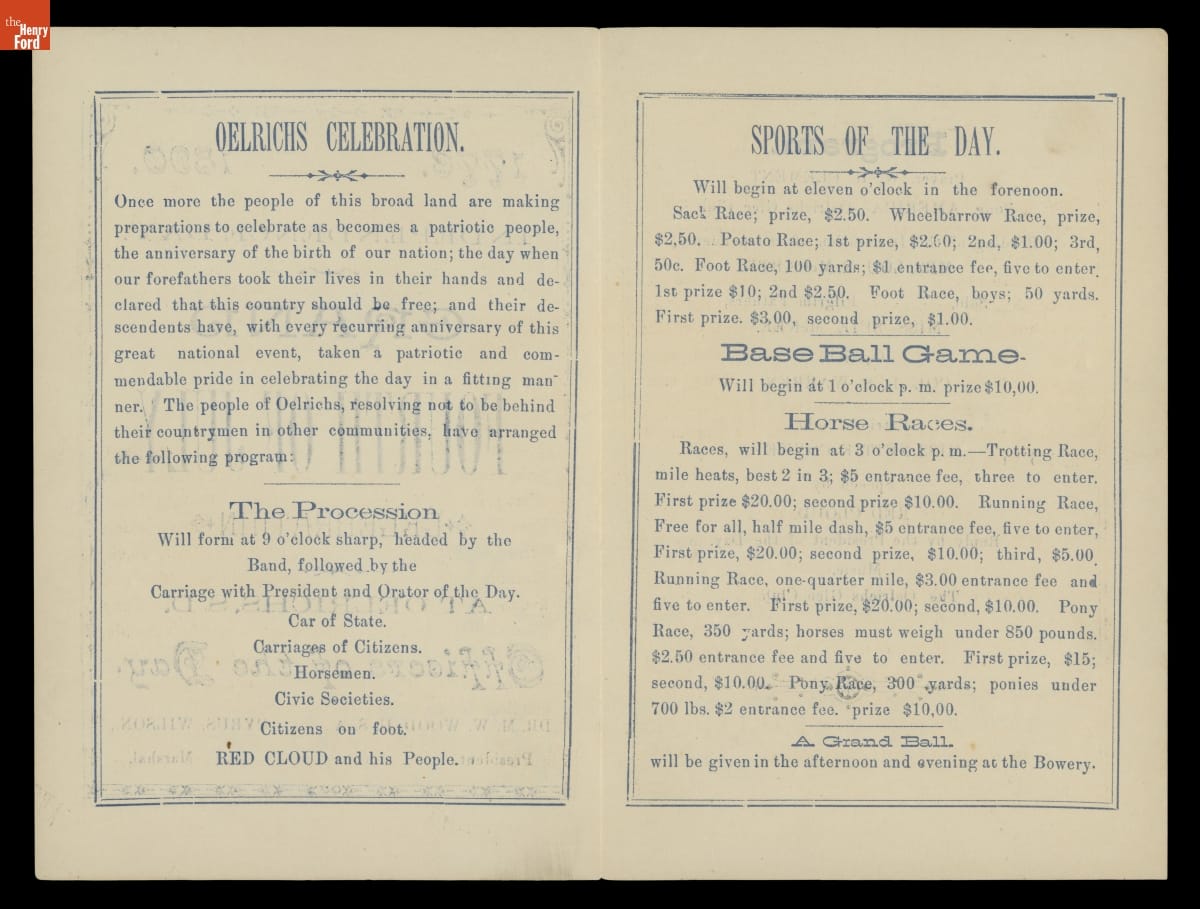 the
Henry
Ford
OELRICHS CELEBRATION.
Once more the people of this broad land are making
preparations to celebrate as becomes a patriotic people,
the anniversary of the birth of our nation; the day when
our forefathers took their lives in their hands and de-
clared that this country should be free; and their de-
scendents have, with every recurring anniversary of this
great national event, taken a patriotic and com-
mendable pride in celebrating the day in a fitting man-
ner. The people of Oelrichs, resolving not to be behind
their countrymen in other communities, have arranged
the following program:
The Procession
Will form at 9 o'clock sharp, headed by the
Band, followed by the
Carriage with President and Orator of the Day.
Car of State.
Carriages of Citizens.
Horsemen.
Civic Societies.
Citizens on foot.
RED CLOUD and his People.
SPORTS OF THE DAY.
Will begin at eleven o'clock in the forenoon.
Sack Race; prize, $2.50. Wheelbarrow Race, prize,
$2,50. Potato Race; 1st prize, $2.00; 2nd, $1.00; 3rd,
50c. Foot Race, 100 yards; $1 entrance fee, five to enter.
1st prize $10; 2nd $2.50. Foot Race, boys; 50 yards.
First prize. $3,00, second prize, $1.00.
Base Ball Game-
Will begin at 1 o'clock p. m. prize $10,00.
Horse Races.
Races, will begin at 3 o'clock p. m.—Trotting Race,
mile heats, best 2 in 3; $5 entrance fee, three to enter.
First prize $20.00; second prize $10.00. Running Race,
Free for all, half mile dash, $5 entrance fee, five to enter,
First prize, $20.00; second prize, $10.00; third, $5.00.
Running Race, one-quarter mile, $3.00 entrance fee and
five to enter. First prize, $20.00; second, $10.00. Pony
Race, 350 yards; horses must weigh under 850 pounds.
$2.50 entrance fee and five to enter. First prize, $15;
second, $10.00. Pony Race, 300 yards; ponies under
700 lbs. $2 entrance fee. prize $10,00.
A Grand Ball.
will be given in the afternoon and evening at the Bowery.